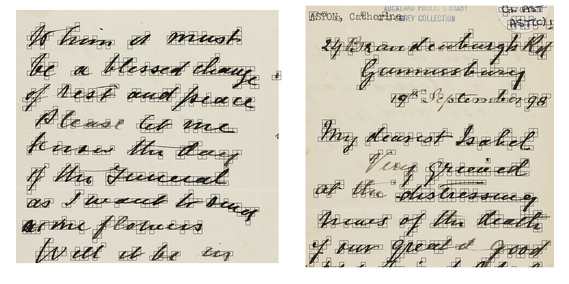 To him it must
be a blessed change
of rest and peace
Please let me
know the day
of the Funeral
as I want to send
some flowers
Will it be in
ASTON, Catherine
AUCKLAND PUBLIC LIBRARY
GREY COLLECTION
GL AST
AST(O)
Brandenburgh Rd
Gunnersbury
19th September 98
My dearest Isabel
Very grieved
at the distressing
news of the death
of our great & good